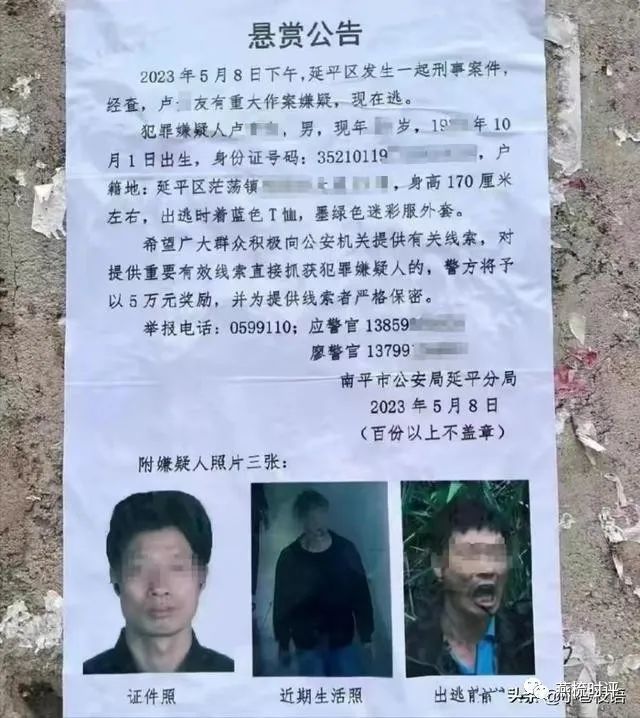 悬赏公告
2023年5月8日下午,延平区发生一起刑事案件,
经查,卢 友有重大作案嫌疑,现在逃。
犯罪嫌疑人卢 ,男,现年 岁,19 年10
月1日出生,身份证号码:35210119 ,户
籍地:延平区茫荡镇 ,身高170厘米
左右,出逃时着蓝色T恤,墨绿色迷彩服外套。
希望广大群众积极向公安机关提供有关线索,对
提供重要有效线索直接抓获犯罪嫌疑人的,警方将予
以5万元奖励,并为提供线索者严格保密。
举报电话:0599110;应警官13859
廖警官13799
南平市公安局延平分局
2023年5月8日
(百份以上不盖章)
附嫌疑人照片三张:
证件照 近期生活照 出逃前
燕梳时评